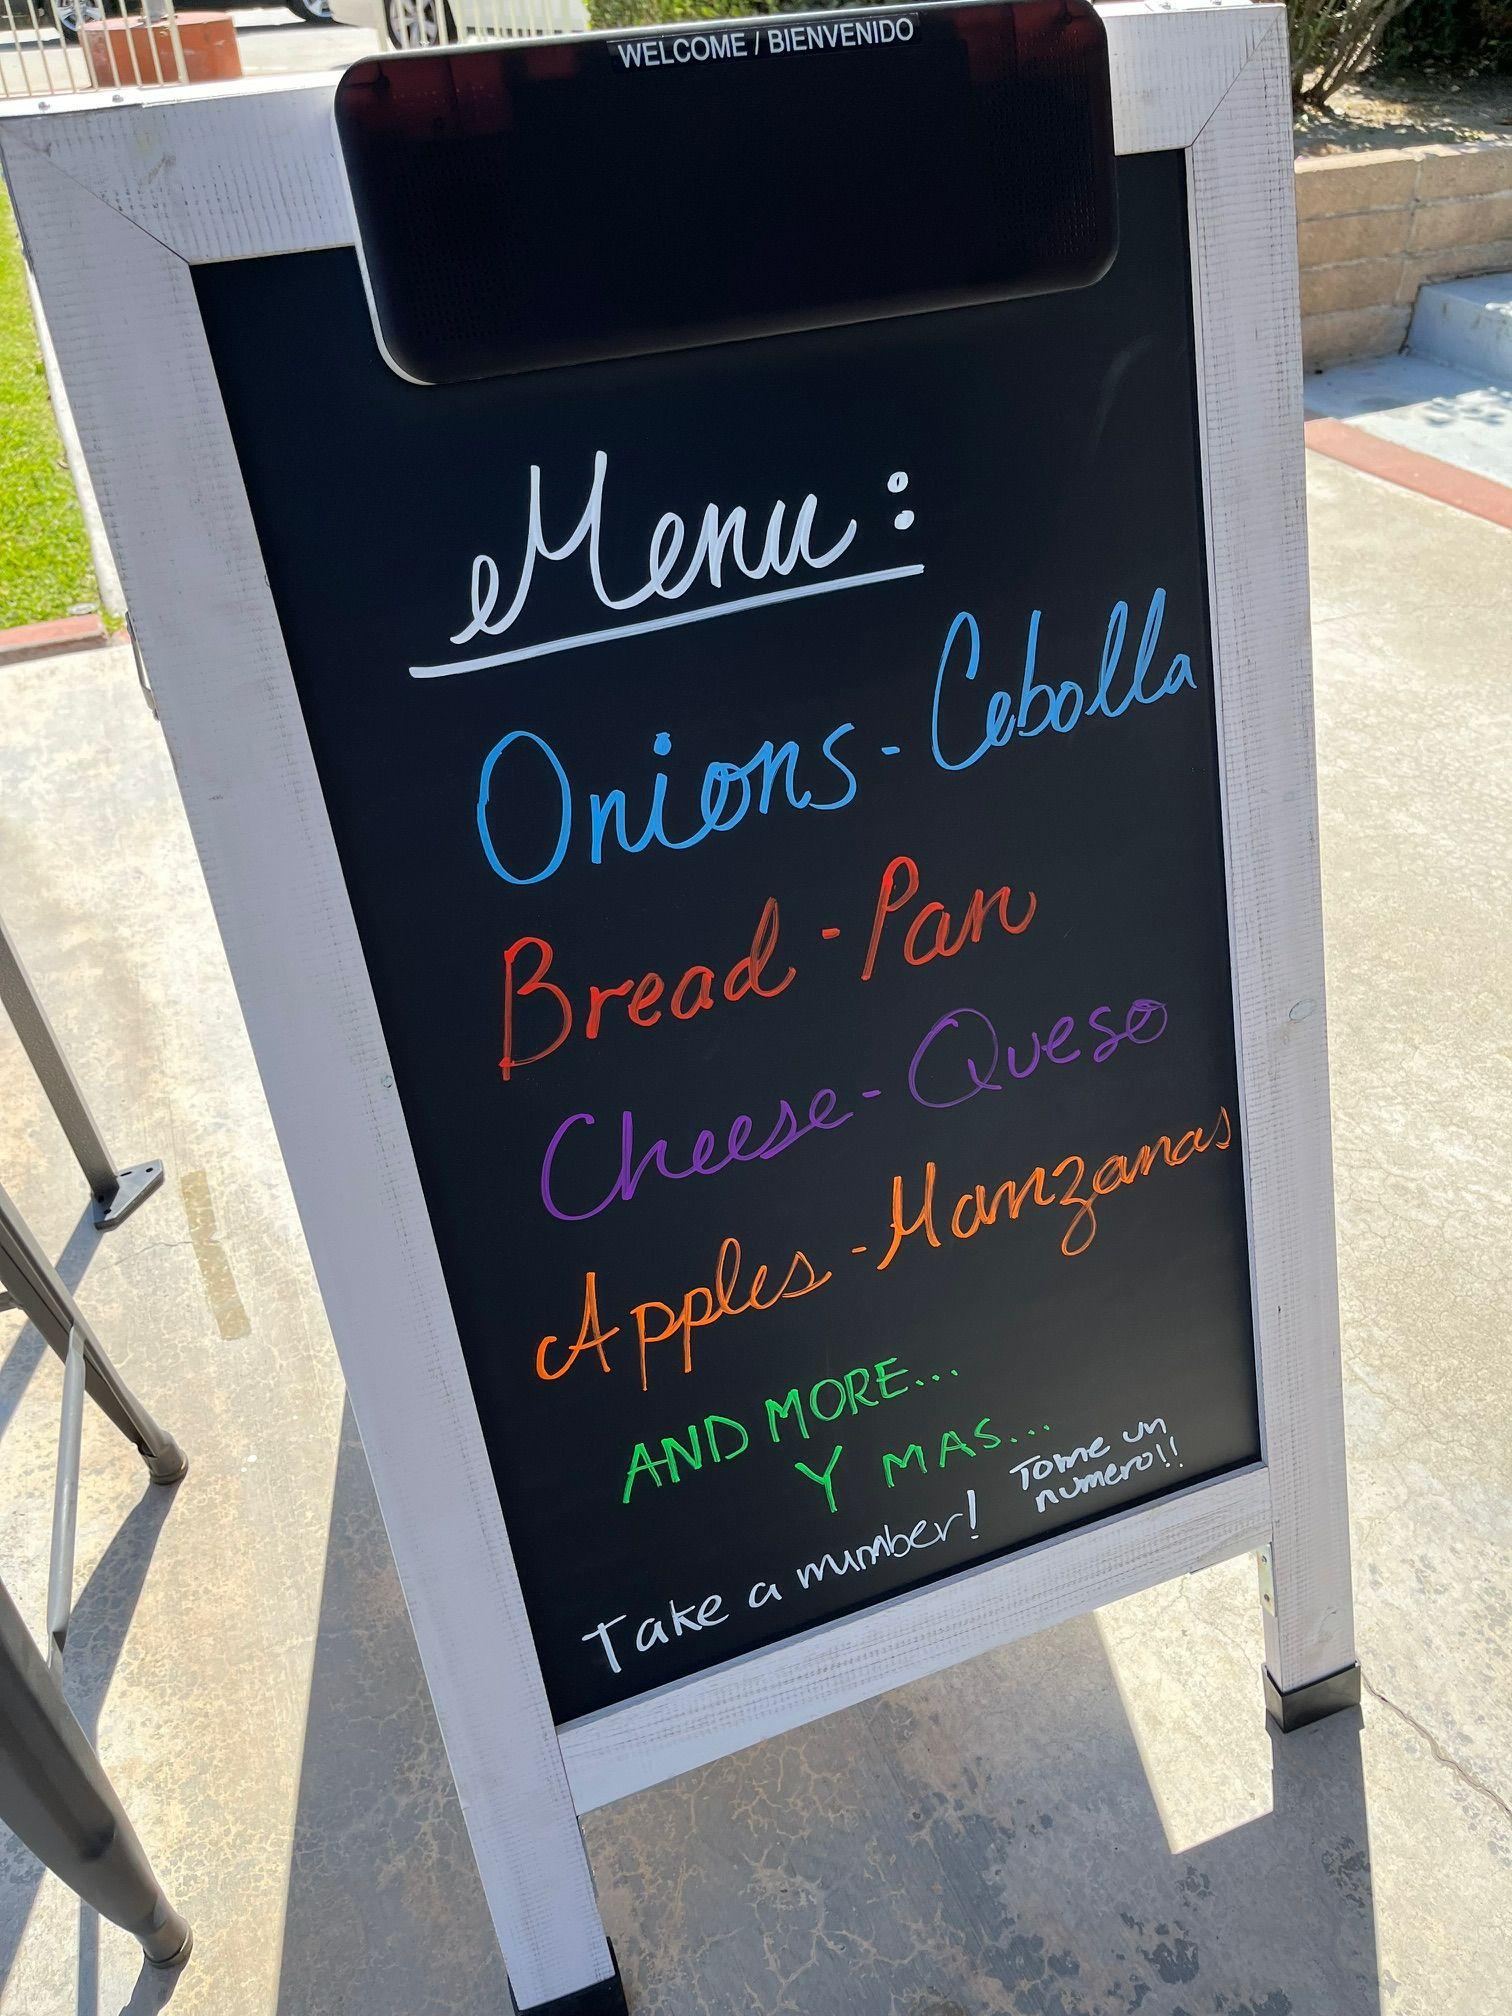 WELCOME / BIENVENIDO
Menu:
Onions - Cebolla
Bread - Pan
Cheese - Queso
Apples - Manzanas
AND MORE...
Y MAS...
Take a number!
Tome un
numero!!